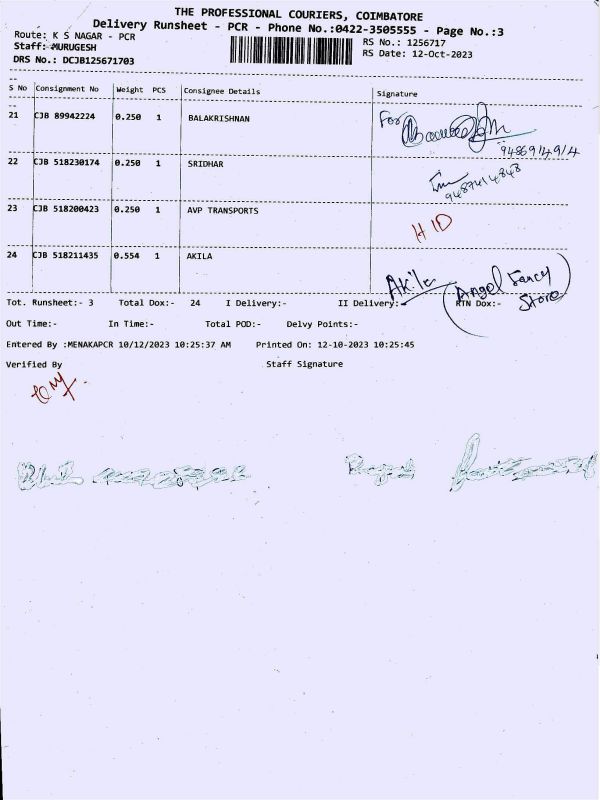 THE PROFESSIONAL COURIERS, COIMBATORE
Delivery Runsheet - PCR - Phone No.:0422-3505555 - Page No.:3
Route: K S NAGAR - PCR
RS No.: 1256717
Staff: MURUGESH
RS Date: 12-Oct-2023
DRS No.: DCJB125671703
S No Consignment No Weight PCS Consignee Details Signature
21 CJB 89942224 0.250 1 BALAKRISHNAN For
9486914914
22 CJB 518230174 0.250 1 SRIDHAR
9487414848
23 CJB 518200423 0.250 1 AVP TRANSPORTS H ID
24 CJB 518211435 0.554 1 AKILA Akila (Angel Fancy Store)
Tot. Runsheet:- 3 Total Dox:- 24 I Delivery:- II Delivery:- RTN Dox:-
Out Time:- In Time:- Total POD:- Delvy Points:-
Entered By :MENAKAPCR 10/12/2023 10:25:37 AM Printed On: 12-10-2023 10:25:45
Verified By Staff Signature